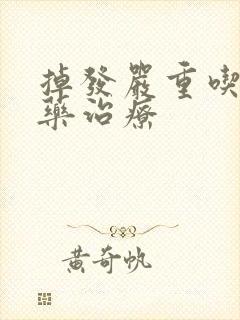 掉發嚴重喫
藥治療
黃奇帆